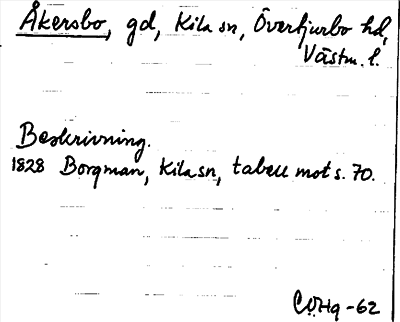 Åkersbo, gd, Kila sn, Övertjurbo hd,
Västm. l.
Beskrivning.
1828 Borgman, Kila sn, tabell mot s. 70.
CÖHq -62